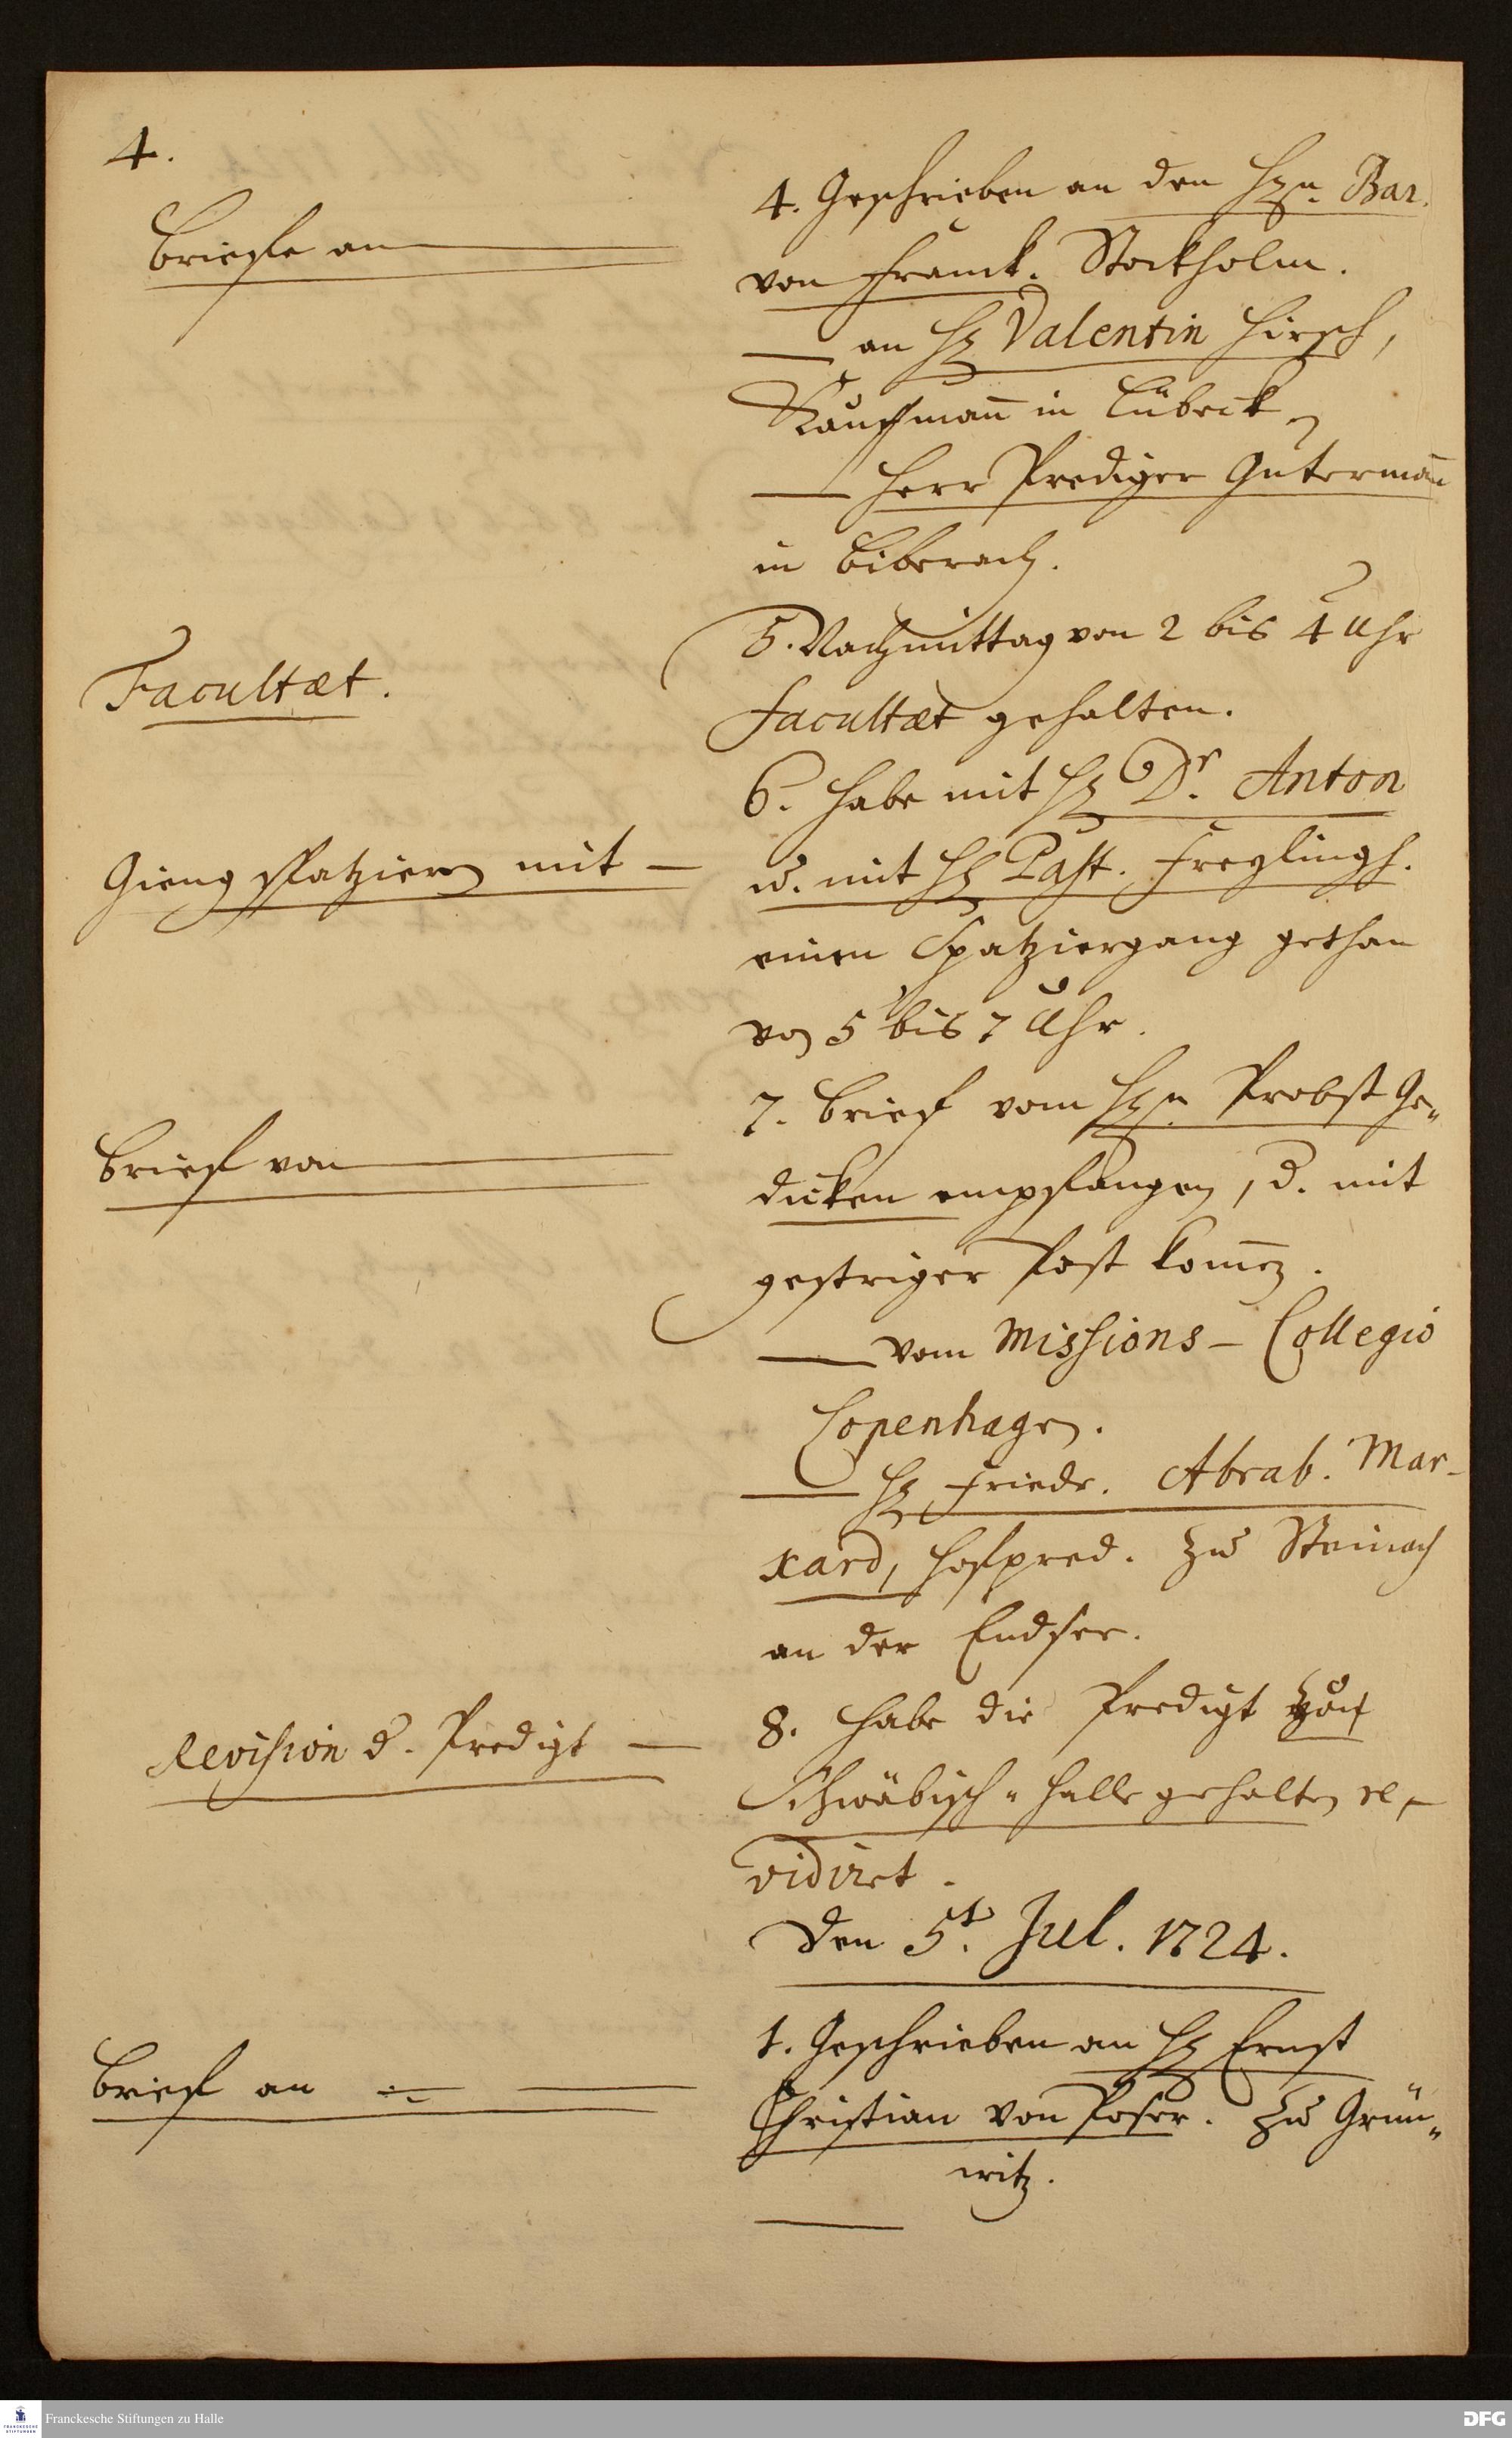 4.
Briefe an
4. Geschrieben an den Hrn. Bar.
von Franck. Stockholm.
— an H. Valentin Hirsch,
Kauffman̄ in Lübeck
— Herr Prediger Guterman̄
in Biberach.
Facultæt.
5. Nachmittag von 2 bis 4 Uhr
Facultæt gehalten.
6. Habe mit H. Dr. Anton
Gieng spatzieren mit —
u. mit H. Past. Freylingh.
einen Spatziergang gethan
von 5 bis 7 Uhr.
7. Brief vom Hrn. Probst Ge„
Brief von
dicken empfangen, d. mit
gestriger Post kom̄en.
— vom Missions - Collegio
Copenhagen.
— H. Friedr. Abrah. Mar-
xard, Hofpred. zu Steinach
an der Endser.
8. Habe die Predigt zu
Revision d. Predigt —
Schwäbisch-Halle gehalten re-
vidiret.
Den 5t. Jul. 1724.
1. Geschrieben an H. Ernst
Brief an
Christian von Poser. zu Grün„
witz.
Franckesche Stiftungen zu Halle
FRANCKESCHE STIFTUNGEN
DFG